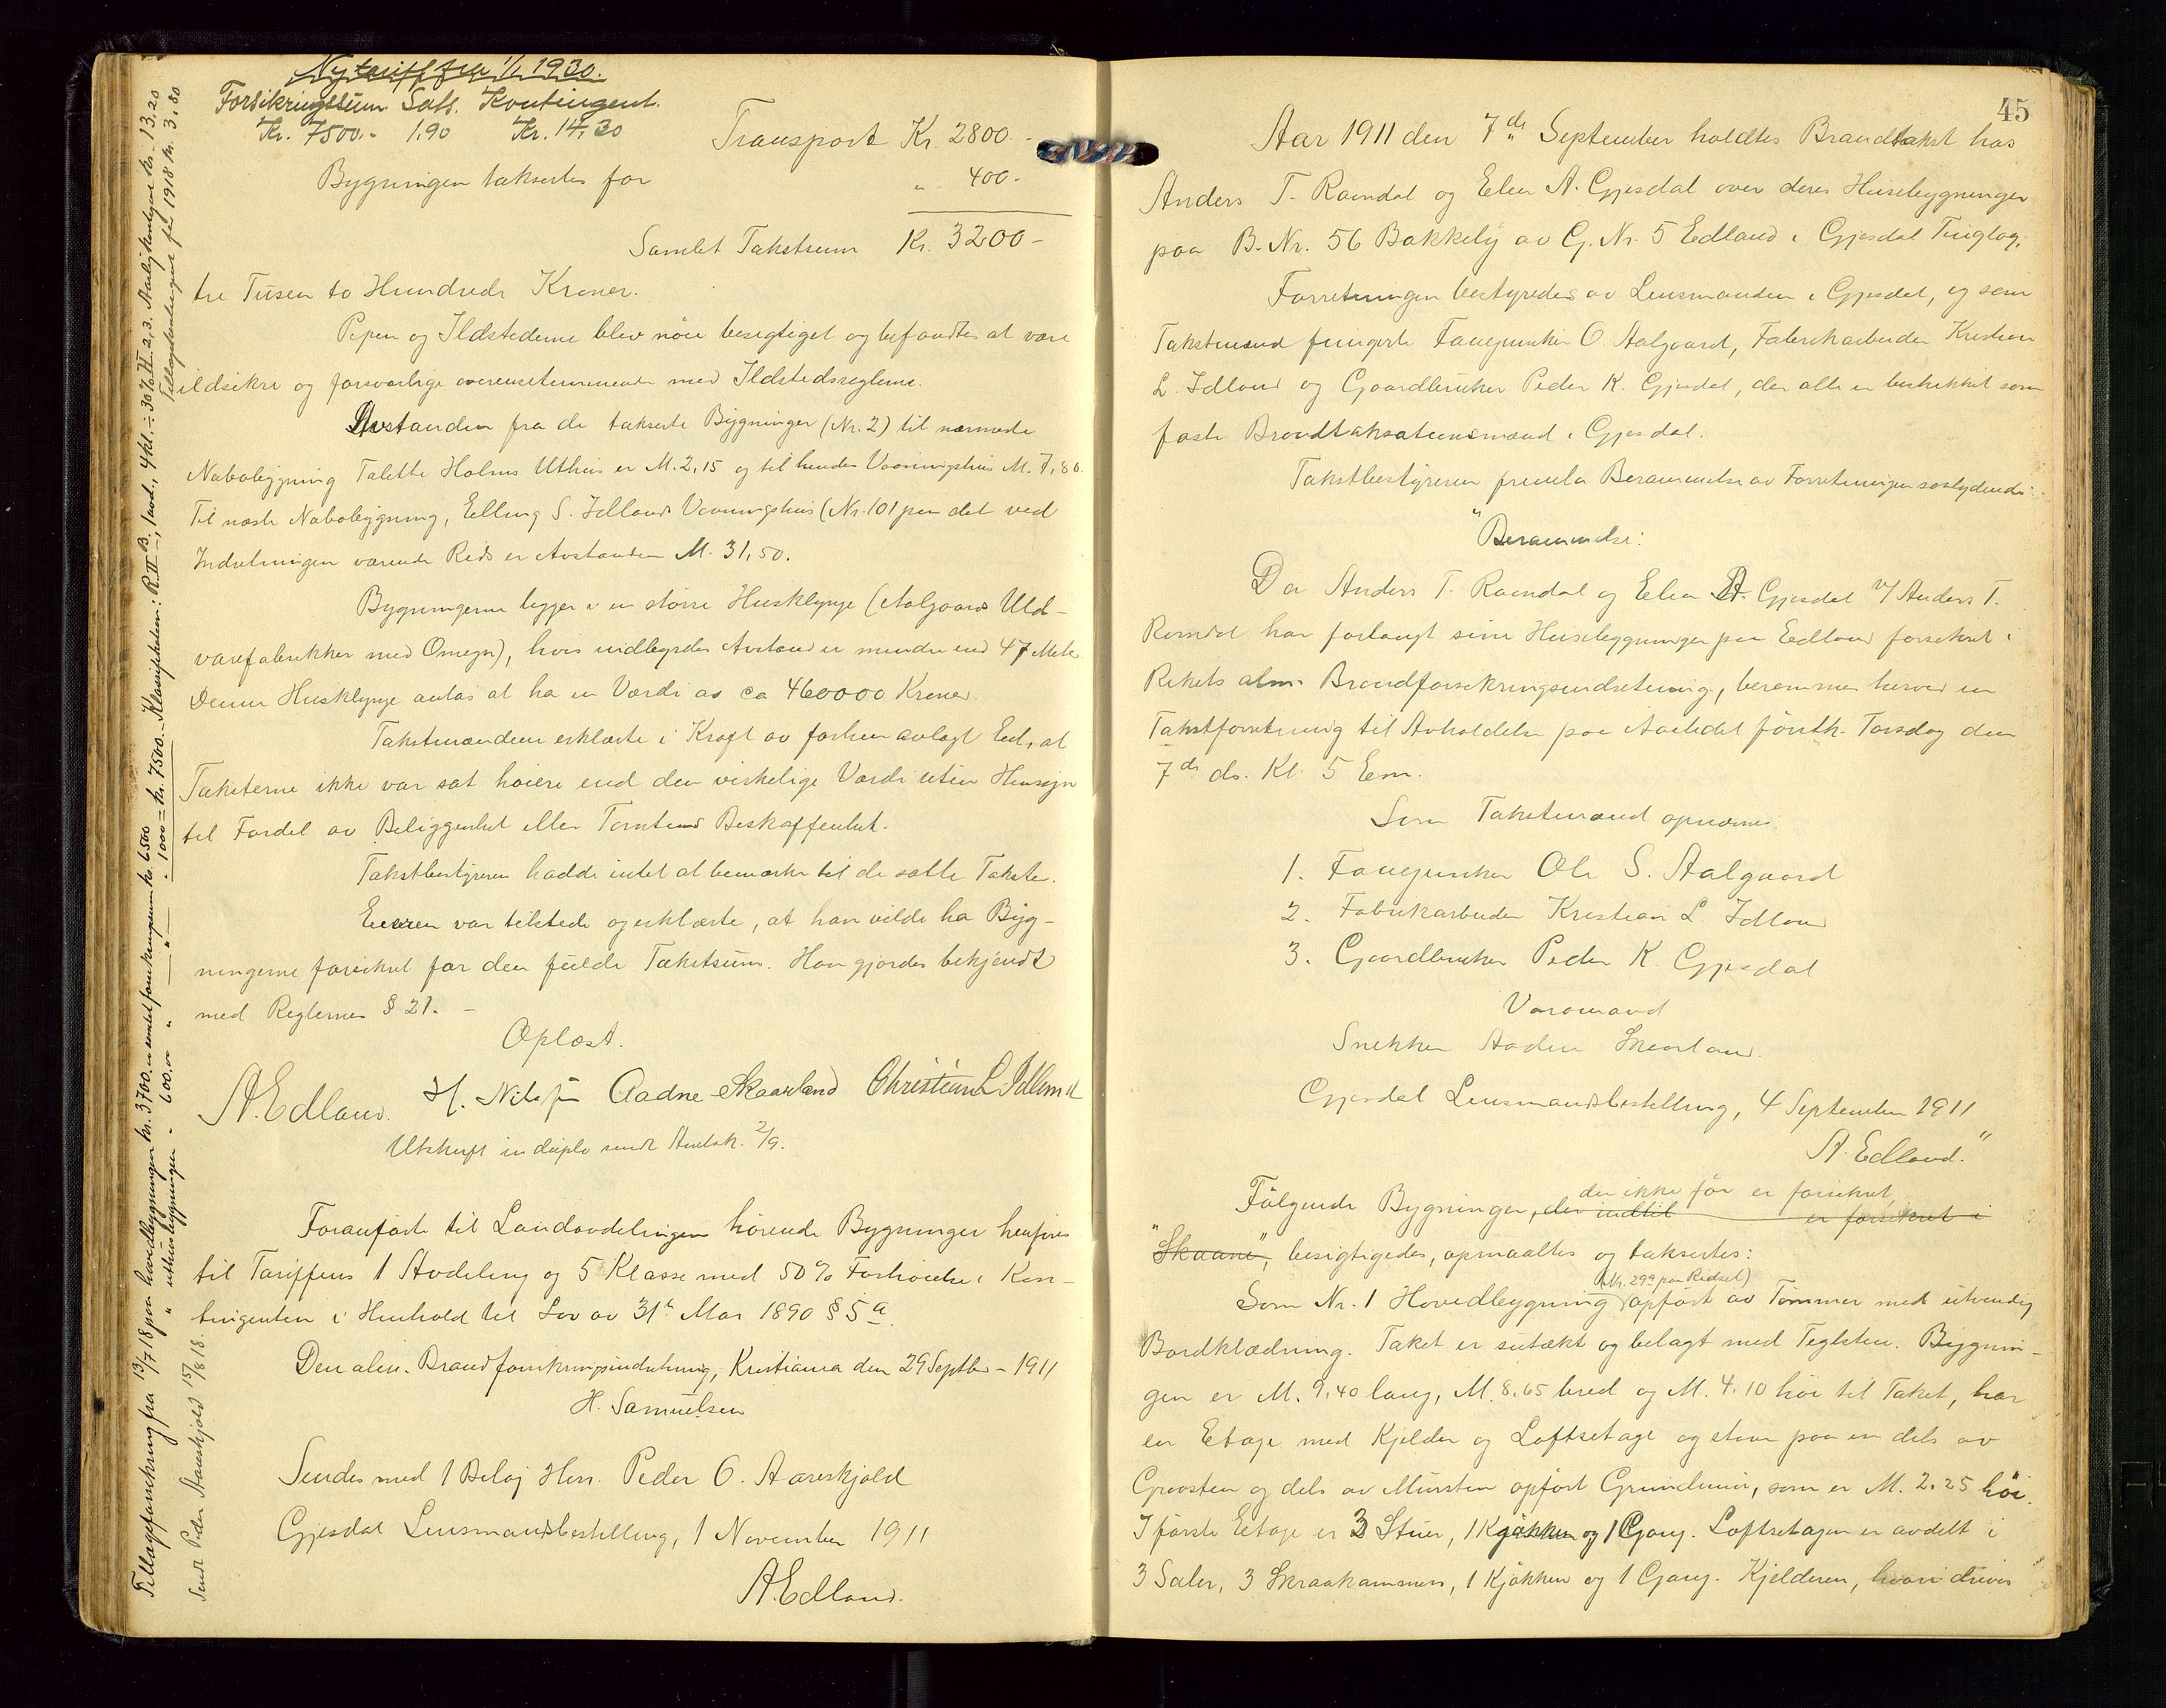 Ny tariff fra 1/1 1930.
Forsikringssum Sats. Kontingent.
Kr. 7500.- 1.90 Kr. 14,30
Transport Kr. 2800.-
Bygningen taksertes for " 400.-
Samlet Takstsum Kr. 3200-
tre Tusen to Hundrede Kroner.
Pipen og Ildstederne blev nöie besigtiget og befandtes at være
ildsikre og forsvarlige overensstemmende med Ildstedsreglerne.
Avstanden fra de takserte Bygninger (Nr. 2) til nærmeste
Nabobygning Talette Holms Uthus er M. 2,15 og til hendes Vaaningshus M. 7,80.
Til næste Nabobygning, Elling S. Idlands Vaaningshus (Nr. 101 paa det ved
Indretningen værende Rids er Avstanden M. 31,50.
Bygningerne ligger i en större Husklynge (Aalgaards Uld-
varefabrikker med Omegn), hvis indbyrdes Avstand er mindre end 47 Meter.
Denne Husklynge antas at ha en Værdi av ca 460000 Kroner.
Takstmændene erklærte i Kraft av forhen avlagt Ed, at
Taksterne ikke var sat höiere end den virkelige Værdi uten Hensyn
til Fordel av Beliggenhet eller Tomtens Beskaffenhet.
Takstbestyreren hadde intet at bemærke til de satte Takster.
Eieren var tilstede og erklærte, at han vilde ha Byg-
ningerne forsikret for den fulde Takstsum. Han gjordes bekjendt
med Reglernes § 21. -
Oplæst.
A. Edland. H. Nilsen Aadne Skaarland Christian L Idland
Utskrift in duplo sendt Amtsk. 2/9.
Foranförte til Landavdelingen hörende Bygninger henföres
til Tariffens 1 Avdeling og 5 Klasse med 50% Forhöielse i Kon-
tingenten i Henhold til Lov av 31te Mai 1890 § 5 a.
Den alm. Brandforsikringsindretning, Kristiania den 29 Septbr - 1911
H. Samuelsen
Sendes med 1 Bilag Herr Peder O. Aareskjold
Gjesdal Lensmandsbestilling, 1 November 1911
A. Edland.
Tillægsforsikring fra 13/7 18 paa hovedbygningen kr. 3700.- samlet forsikringssum kr. 6500
" " uthusbygningen " 600,00 " " " 1000 = kr. 7500.- Klassifikation: R. II B., 1 avd., 4 kl. ÷ 30 % II. 2,3. Aarlig kontingent kr. 13,20
Tillægskontingent for 1918 kr. 3,80
Sendt Peder Aareskjold 15/8 18.
45
Aar 1911 den 7de September holdtes Brandtakst hos
Anders T. Ravndal og Elen A. Gjesdal over deres Husebygninger
paa B. Nr. 56 Bakkely av G. Nr. 5 Edland i Gjesdal Tinglag.
Forretningen bestyredes av Lensmanden i Gjesdal, og som
Takstmænd fungerte Fanejunker O Aalgaard, Fabrikarbeider Kristian
L. Idland og Gaardbruker Peder K. Gjesdal, der alle er beskikket som
faste Brandtakstionsmænd i Gjesdal.
Takstbestyreren fremla Berammelse av Forretningen saalydende:
"Berammelse:
Da Anders T. Ravndal og Elen A. Gjesdal v/ Anders T.
Ravndal har forlangt sine Husebygninger paa Edland forsikret i
Rikets alm. Brandforsikringsindretning, berammes herved en
Takstforretning til Avholdelse paa Aastedet förstk. Torsdag den
7de ds. Kl. 5 Em.
Som Takstmænd opnævnes
1. Fanejunker Ole S. Aalgaard
2. Fabrikarbeider Kristian L Idland
3. Gaardbruker Peder K Gjesdal
Varamand
Snekker Aadne Skaarland.
Gjesdal Lensmandsbestilling, 4 September 1911
A. Edland."
der ikke før er forsikret,
Fölgende Bygninger, der indtil er forsikret i
"Skaane", besigtigedes, opmaaltes og taksertes:
(Nr. 29a paa Ridset)
Som Nr. 1 Hovedbygning opfört av Tömmer med utvendig
Bordklædning. Taket er sutækt og belagt med Teglsten. Bygnin-
gen er M. 9,40 lang, M. 8,65 bred og M. 4,10 höi til Taket, har
en Etage med Kjelder og Loftsetage og staar paa en dels av
Graasten og dels av Mursten opfört Grundmur, som er M. 2,25 höi.
I förste Etage er 3 Stuer, 1 Kjökken og 1 Gang. Loftsetagen er avdelt i
3 Saler, 3 Skraakammers, 1 Kjökken og 1 Gang. Kjelderen, hvori drives